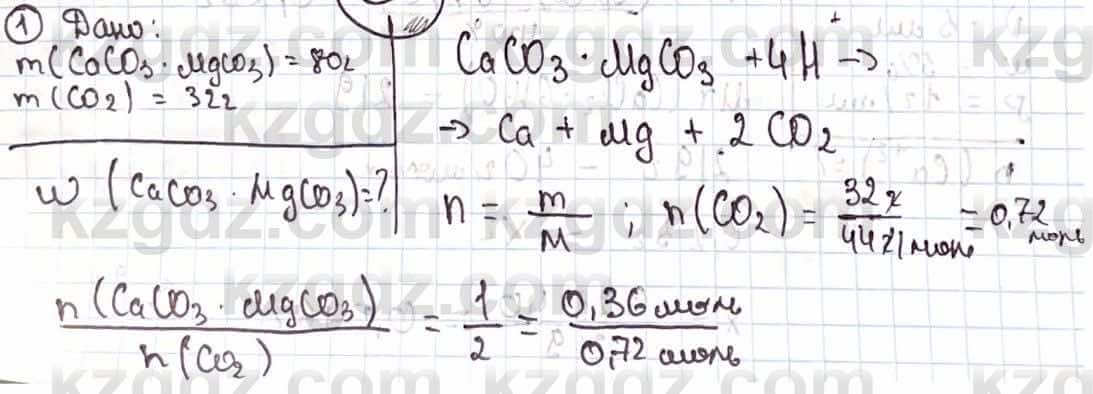 ① Дано:
m(CaCO₃ · MgCO₃) = 80г
m(CO₂) = 32г
ω (CaCO₃ · MgCO₃) = ?
CaCO₃ · MgCO₃ + 4H⁺ →
→ Ca + Mg + 2 CO₂
n = m/M ; n(CO₂) = 32 г/44 г/моль = 0,72 моль
n(CaCO₃ · MgCO₃)/n(CO₂) = 1/2 = 0,36 моль/0,72 моль
kzgdz.com